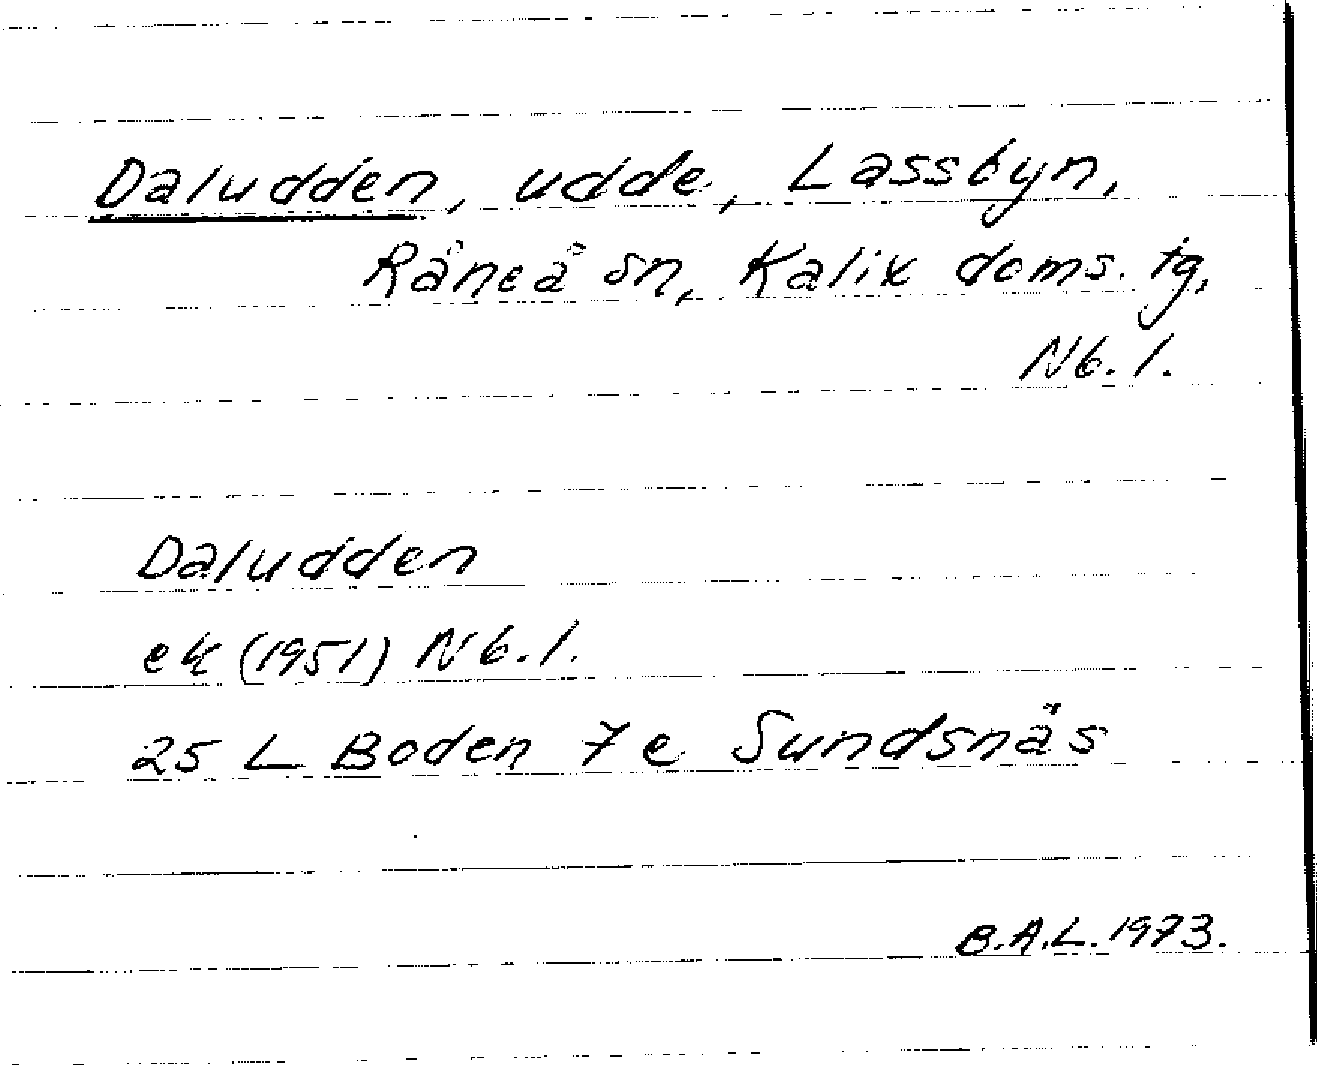 Daludden, udde, Lassbyn,
Råneå sn, Kalix doms. tg,
Nb. l.
Daludden
ek (1951) Nb. l.
25 L Boden 7e Sundsnäs
B.A.L. 1973.